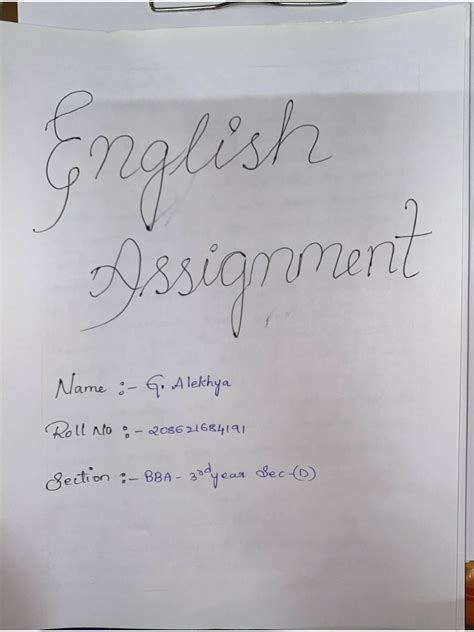 English
Assignment
Name :- G. Alekhya
Roll No :- 208621684191
Section :- BBA - 3rd year Sec-(D)